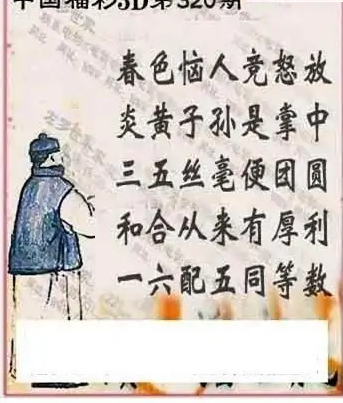 中国福彩3D第320期
春色恼人竞怒放
炎黄子孙是掌中
三五丝毫便团圆
和合从来有厚利
一六配五同等数